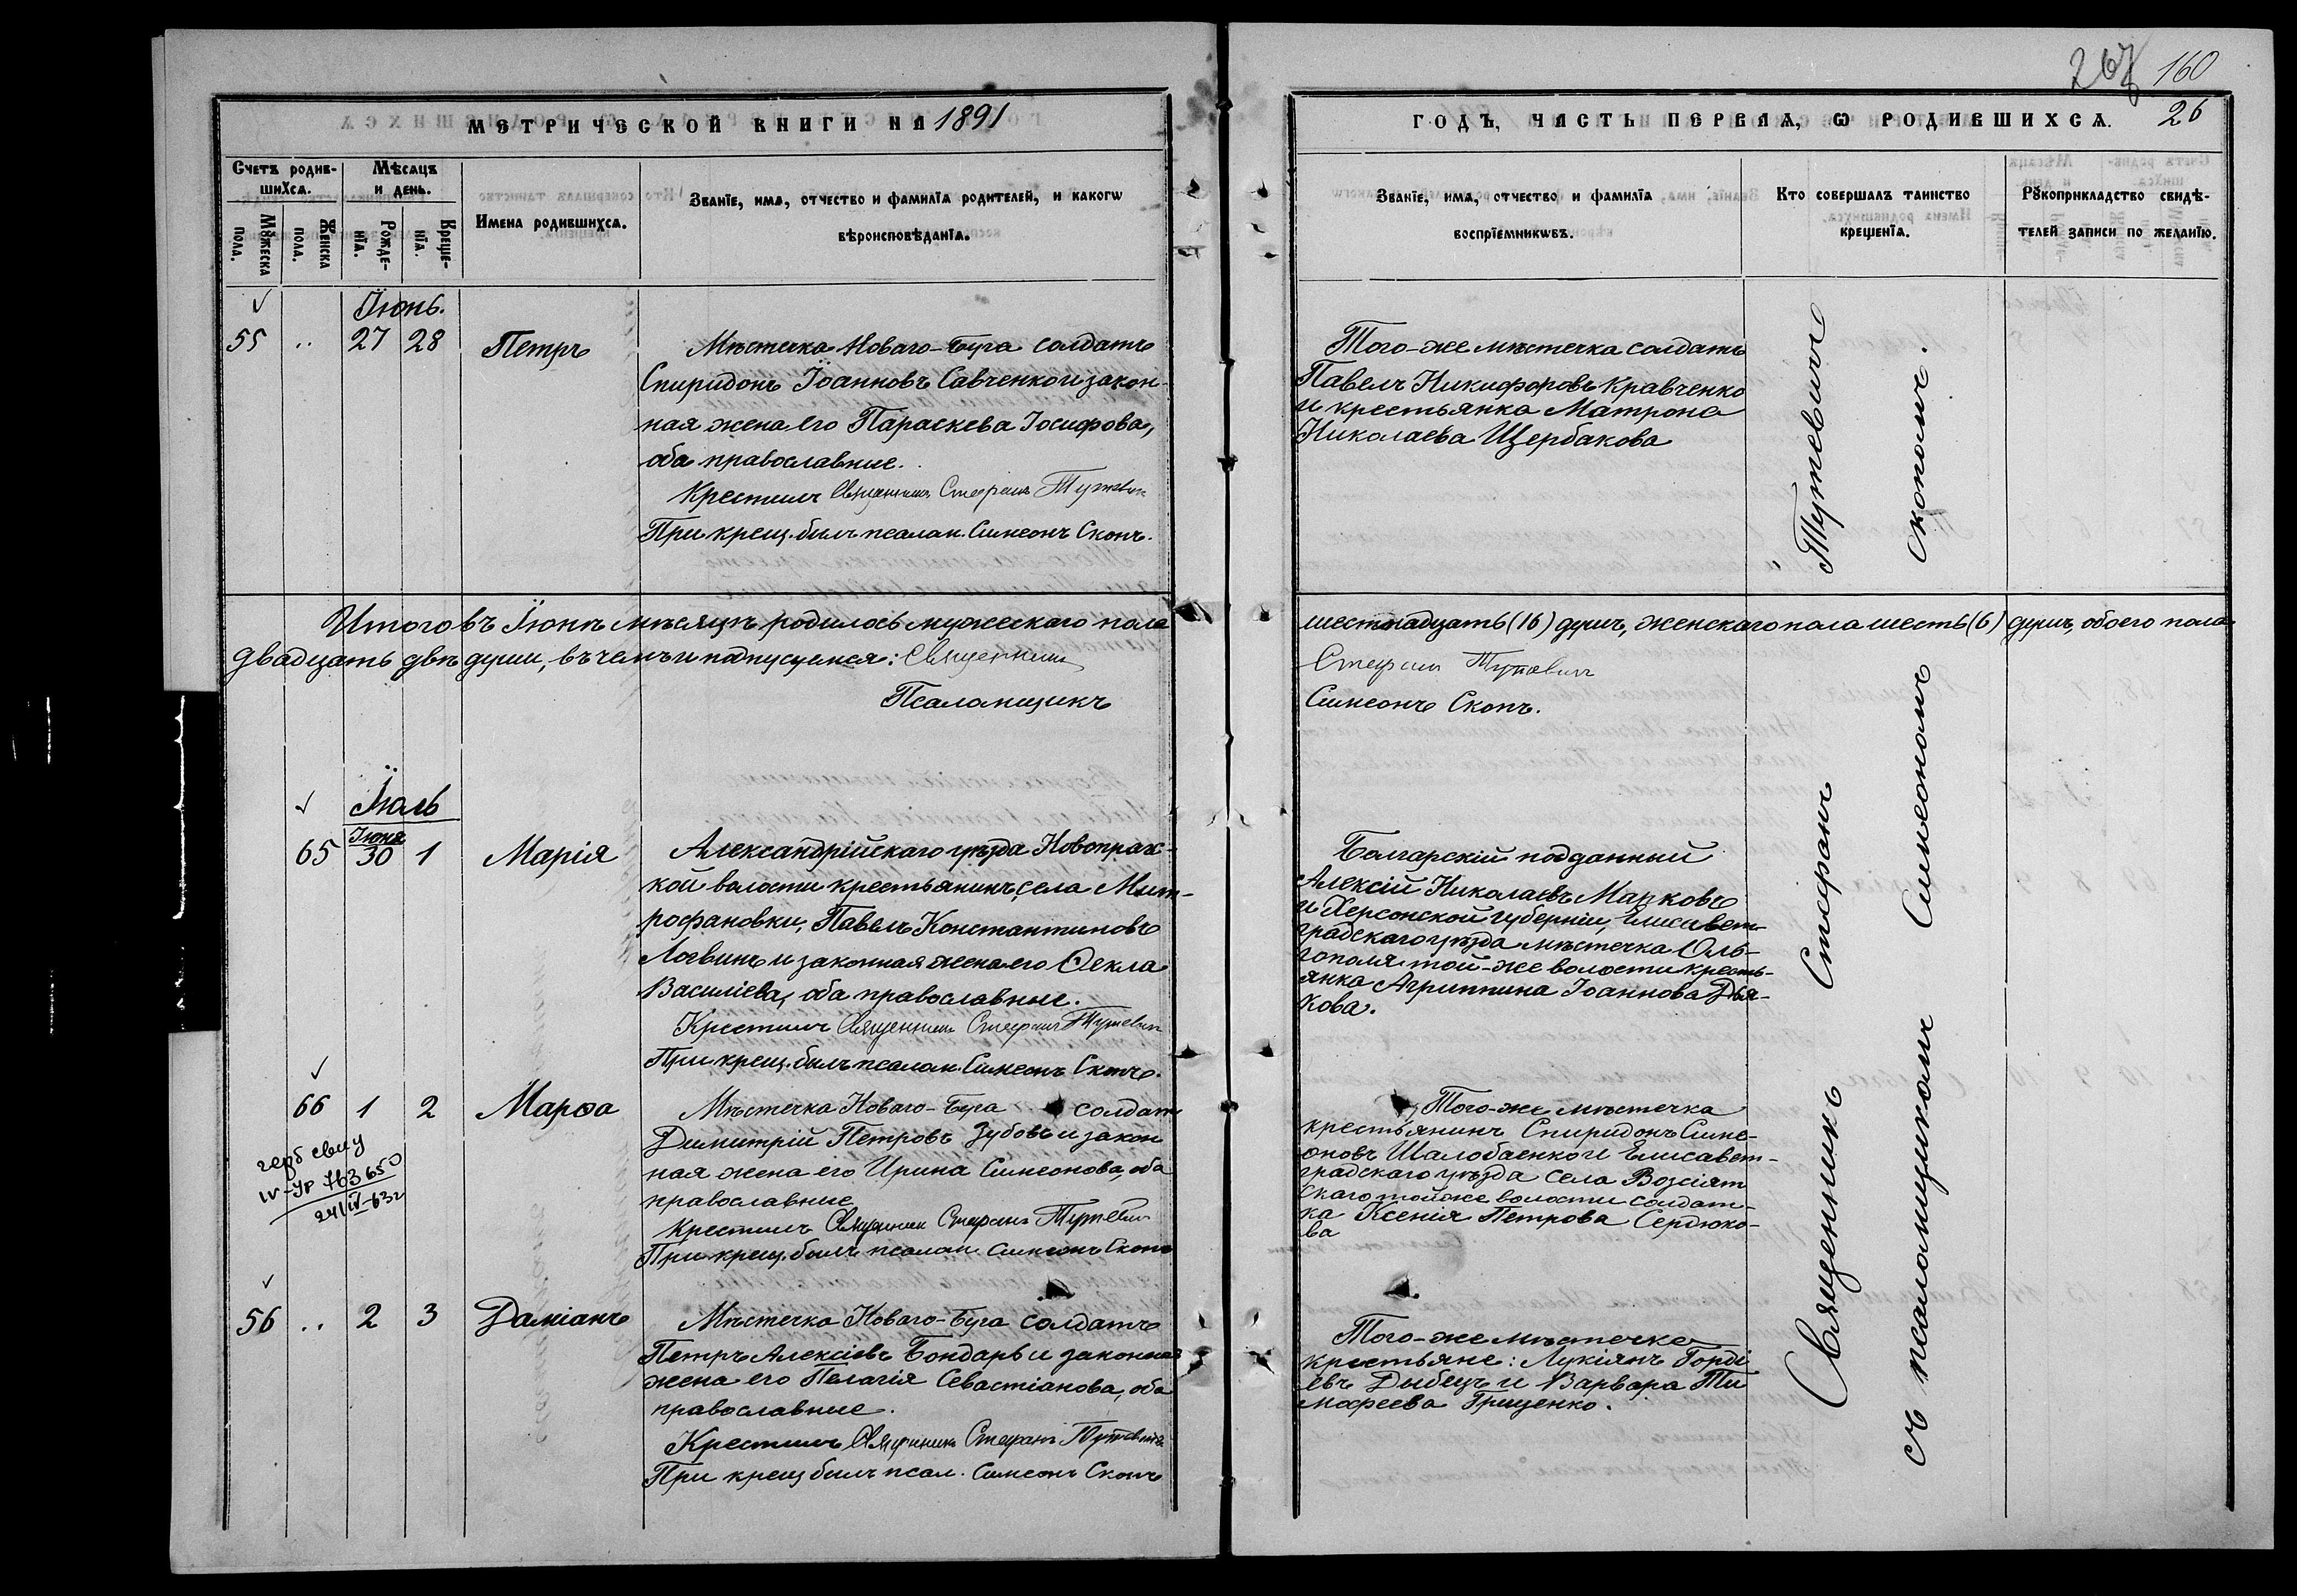 267 160
МЕТРИЧЕСКОЙ КНИГИ НА 1891
Счетъ родив-
шихся.
Мѣсяцъ
и день.
Мꙋжеска
пола.
Женска
пола.
Рожде-
нїя.
Креще-
нїя.
Имена родившихся.
Званїе, имя, отчество и фамилїя родителей, и какогѡ
вѣроисповѣданїя.
Іюнь.
55 .. 27 28 Петръ
Мѣстечка Новаго-Буга солдатъ
Спиридонъ Іоанновъ Савченко и закон-
ная жена его Параскева Іосифова,
оба православные.
Крестилъ Священникъ Стефанъ Тутевичъ
При крещ. былъ псалом. Симеонъ Скопъ.
Итого въ Іюнѣ мѣсяцѣ родилось мужескаго пола
двадцать двѣ души, въ чемъ и подписуемся: Священникъ
Псаломщикъ
Іюль
Іюня
65 30 1 Марія
Александрійскаго уѣзда Новопраж-
кой волости крестьянинъ, села Мит-
рофановки, Павелъ Константиновъ
Логвинъ и законная жена его Ѳекла
Василіева, оба православные.
Крестилъ Священникъ Стефанъ Тутевичъ
При крещ. былъ псалом. Симеонъ Скопъ.
66 1 2 Марѳа
Мѣстечка Новаго-Буга солдатъ
Димитрій Петровъ Зубовъ и закон
ная жена его Ирина Симеонова, оба
православные
Крестилъ Священникъ Стефанъ Тутевичъ
При крещ. былъ псалом. Симеонъ Скопъ
763650
56 .. 2 3 Даміанъ
Мѣстечка Новаго-Буга солдатъ
Петръ Алексіевъ Бондарь и законная
жена его Пелагія Севастіанова, оба
православные.
Крестилъ Священникъ Стефанъ Тутевичъ
При крещ былъ псал. Симеонъ Скопъ
ГОДЪ, ЧАСТЬ ПЕРВАЯ, Ѡ РОДИВШИХСЯ. 26
Званїе, имя, отчество и фамилїя
воспрїемникѡвъ.
Кто совершалъ таинство
крещенїя.
Рꙋкоприкладство свидѣ-
телей записи по желанїю.
Того-же мѣстечка солдатъ
Павелъ Никифоровъ Кравченко
и крестьянка Матрона
Николаева Щербакова
шестнадцать (16) душъ, женскаго пола шесть (6) душъ, обоего пола
Стефанъ Тутевичъ
Симеонъ Скопъ.
Болгарскій подданный
Алексій Николаевъ Марковъ
и Херсонской губерніи, Елисавет-
градскаго уѣзда мѣстечка Оль-
гополя той-же волости кресть-
янка Агриппина Іоаннова Дья-
кова.
Того-же мѣстечка
крестьянинъ Спиридонъ Симе-
оновъ Шалобаенко и Елисавет-
градскаго уѣзда села Возсіят
скаго той же волости солдат-
ка Ксенія Петрова Сердюко-
ва
Того-же мѣстечка
крестьяне: Лукіянъ Горді
евъ Дыбецъ и Варвара Ти
мофеева Грищенко.
Священникъ Стефанъ Тутевичъ
съ псаломщикомъ Симеономъ Скопомъ.